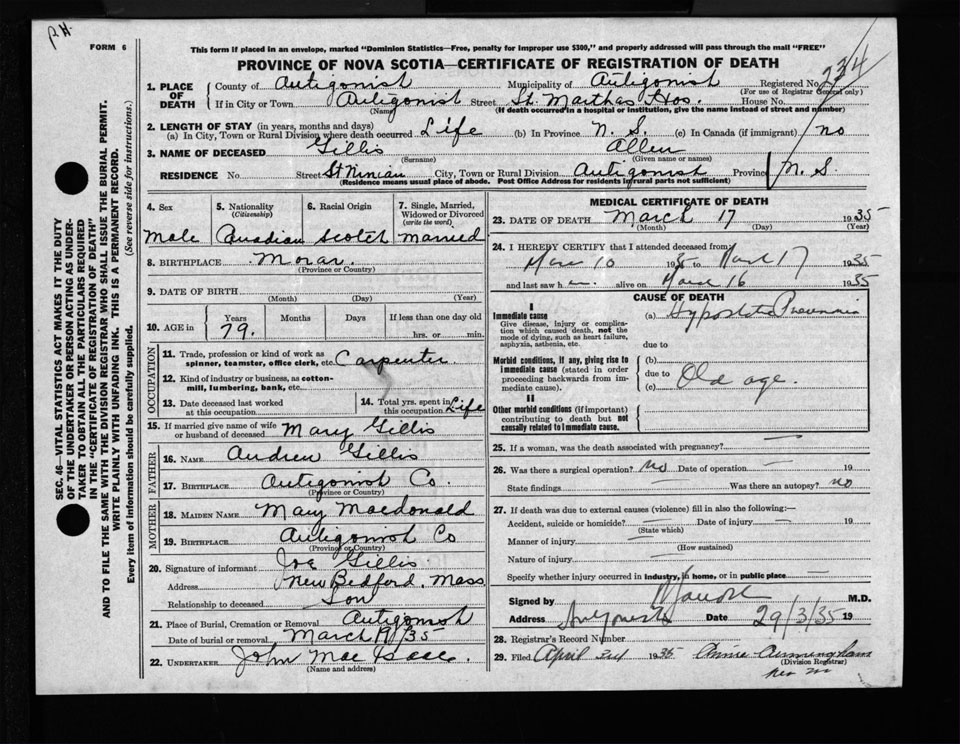 P.H.
FORM 6
This form if placed in an envelope, marked "Dominion Statistics—Free, penalty for improper use $300," and properly addressed will pass through the mail "FREE"
PROVINCE OF NOVA SCOTIA—CERTIFICATE OF REGISTRATION OF DEATH
234
1. PLACE OF DEATH County of Antigonish Municipality of Antigonish Registered No.
(For use of Registrar General only)
If in City or Town Antigonish Street St. Marthas Hos. House No.
(Name) (If death occurred in a hospital or institution, give the name instead of street and number)
2. LENGTH OF STAY (in years, months and days)
(a) In City, Town or Rural Division where death occurred Life (b) In Province N. S. (c) In Canada (if immigrant) no
3. NAME OF DECEASED Gillis Allen
(Surname) (Given name or names)
RESIDENCE No. Street St Ninian City, Town or Rural Division Antigonish Province N. S.
(Residence means usual place of abode. Post Office Address for residents in rural parts not sufficient)
4. Sex 5. Nationality (Citizenship) 6. Racial Origin 7. Single, Married, Widowed or Divorced (write the word)
Male Canadian Scotch Married
8. BIRTHPLACE Morar.
(Province or Country)
9. DATE OF BIRTH
(Month) (Day) (Year)
10. AGE in Years Months Days If less than one day old
79. hrs. or min.
OCCUPATION
11. Trade, profession or kind of work as spinner, teamster, office clerk, etc. Carpenter.
12. Kind of industry or business, as cotton-mill, lumbering, bank, etc.
13. Date deceased last worked at this occupation
14. Total yrs. spent in this occupation Life
15. If married give name of wife or husband of deceased Mary Gillis
FATHER
16. NAME Andrew Gillis
17. BIRTHPLACE Antigonish Co.
(Province or Country)
MOTHER
18. MAIDEN NAME Mary Macdonald
19. BIRTHPLACE Antigonish Co
(Province or Country)
20. Signature of informant Joe Gillis
Address New Bedford, Mass
Relationship to deceased Son
21. Place of Burial, Cremation or Removal Antigonish
Date of burial or removal March 19/35
22. UNDERTAKER John Mac Isaac.
(Name and address)
MEDICAL CERTIFICATE OF DEATH
23. DATE OF DEATH March 17 1935
(Month) (Day) (Year)
24. I HEREBY CERTIFY that I attended deceased from
Marc 10 1935 to March 17 1935
and last saw h im alive on March 16 1935
CAUSE OF DEATH
I
Immediate cause
Give disease, injury or complication which caused death, not the mode of dying, such as heart failure, asphyxia, asthenia, etc.
(a) Hypostatic Pneumonia
due to
Morbid conditions, if any, giving rise to immediate cause (stated in order proceeding backwards from immediate cause).
(b)
due to
(c) Old age.
II
Other morbid conditions (if important) contributing to death but not causally related to immediate cause.
25. If a woman, was the death associated with pregnancy? —
26. Was there a surgical operation? no Date of operation — 19
State findings — Was there an autopsy? no
27. If death was due to external causes (violence) fill in also the following:—
Accident, suicide or homicide? — Date of injury — 19
(State which)
Manner of injury —
(How sustained)
Nature of injury —
Specify whether injury occurred in industry, in home, or in public place —
Signed by M.D.
Address Antigonish Date 29/3/35 19
28. Registrar's Record Number
29. Filed April 3rd 1935 Annie Cunningham
(Division Registrar)
per
SEC. 46—VITAL STATISTICS ACT MAKES IT THE DUTY
OF THE UNDERTAKER OR PERSON ACTING AS UNDER-
TAKER TO OBTAIN ALL THE PARTICULARS REQUIRED
IN THE "CERTIFICATE OF REGISTRATION OF DEATH"
AND TO FILE THE SAME WITH THE DIVISION REGISTRAR WHO SHALL ISSUE THE BURIAL PERMIT.
WRITE PLAINLY WITH UNFADING INK. THIS IS A PERMANENT RECORD.
Every item of information should be carefully supplied. (See reverse side for instructions.)